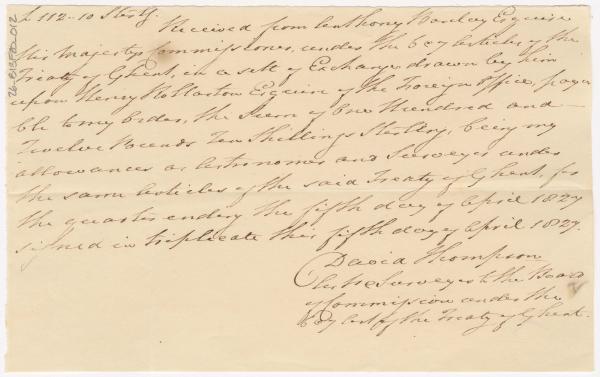 £ 112-10 Sterlg.
Received from Anthony Barclay Esquire
His Majestys Commissioner, under the 6 & 7 Articles of the
Treaty of Ghent, in a sett of Exchange drawn by him
upon Henry Rollaston Esquire of the Foreign Office, paya
ble to my Order, the Sum of One Hundred and
Twelve Pounds Ten Shillings Sterling, being my
allowances as Astronomer and Surveyor under
the same Articles of the said Treaty of Ghent, for
the quarter ending the fifth day of April 1827.
signed in triplicate this fifth day of April 1827.
David Thompson
Astr & Surveyor to the Board
of Commission under the
6 & 7 Art of the Treaty of Ghent.